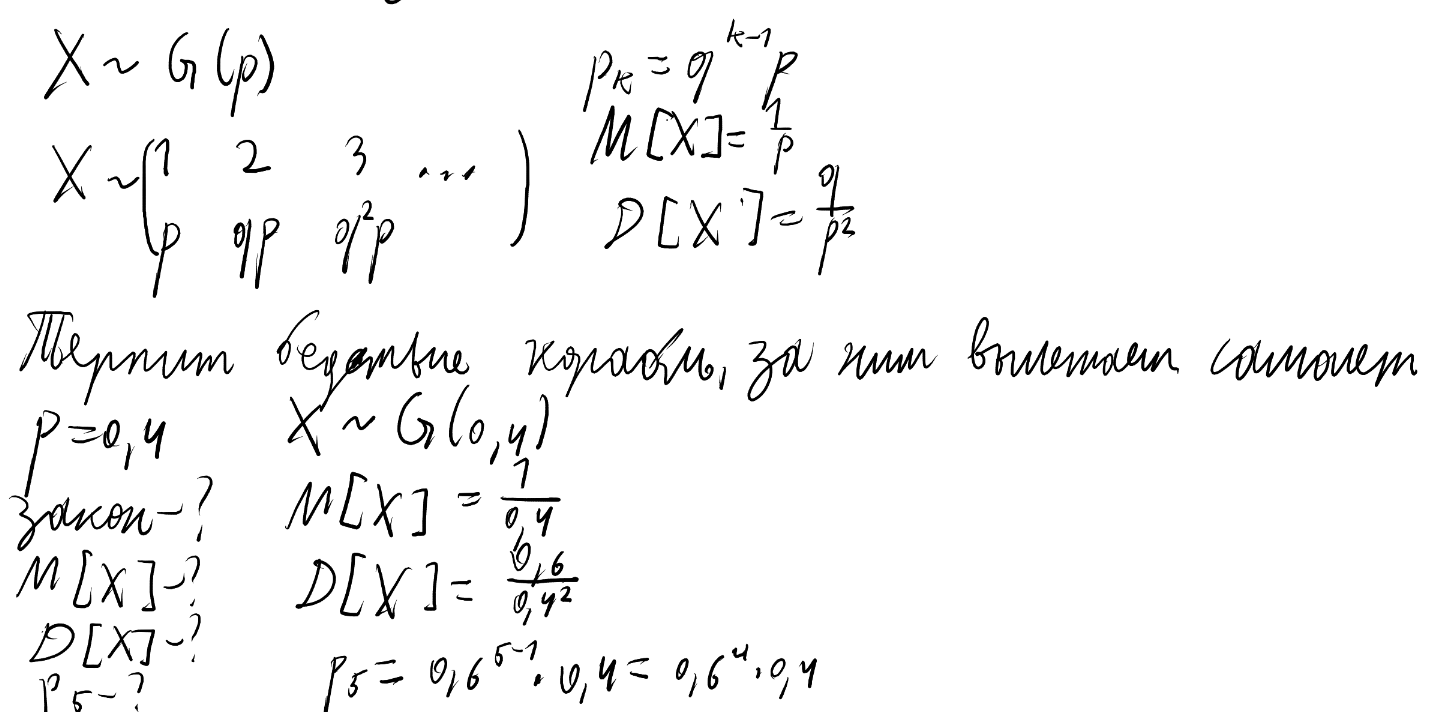 X ~ G(p)
p_k = q^{k-1} p
M[X] = 1/p
X ~ (1 2 3 ...
p qp q²p)
D[X] = q/p²
Терпит бедствие корабль, за ним вылетает самолет
p = 0,4 X ~ G(0,4)
закон - ? M[X] = 1/0,4
M[X] - ? D[X] = 0,6/0,4²
D[X] - ?
p_5 - ? p_5 = 0,6^{5-1} · 0,4 = 0,6^4 · 0,4